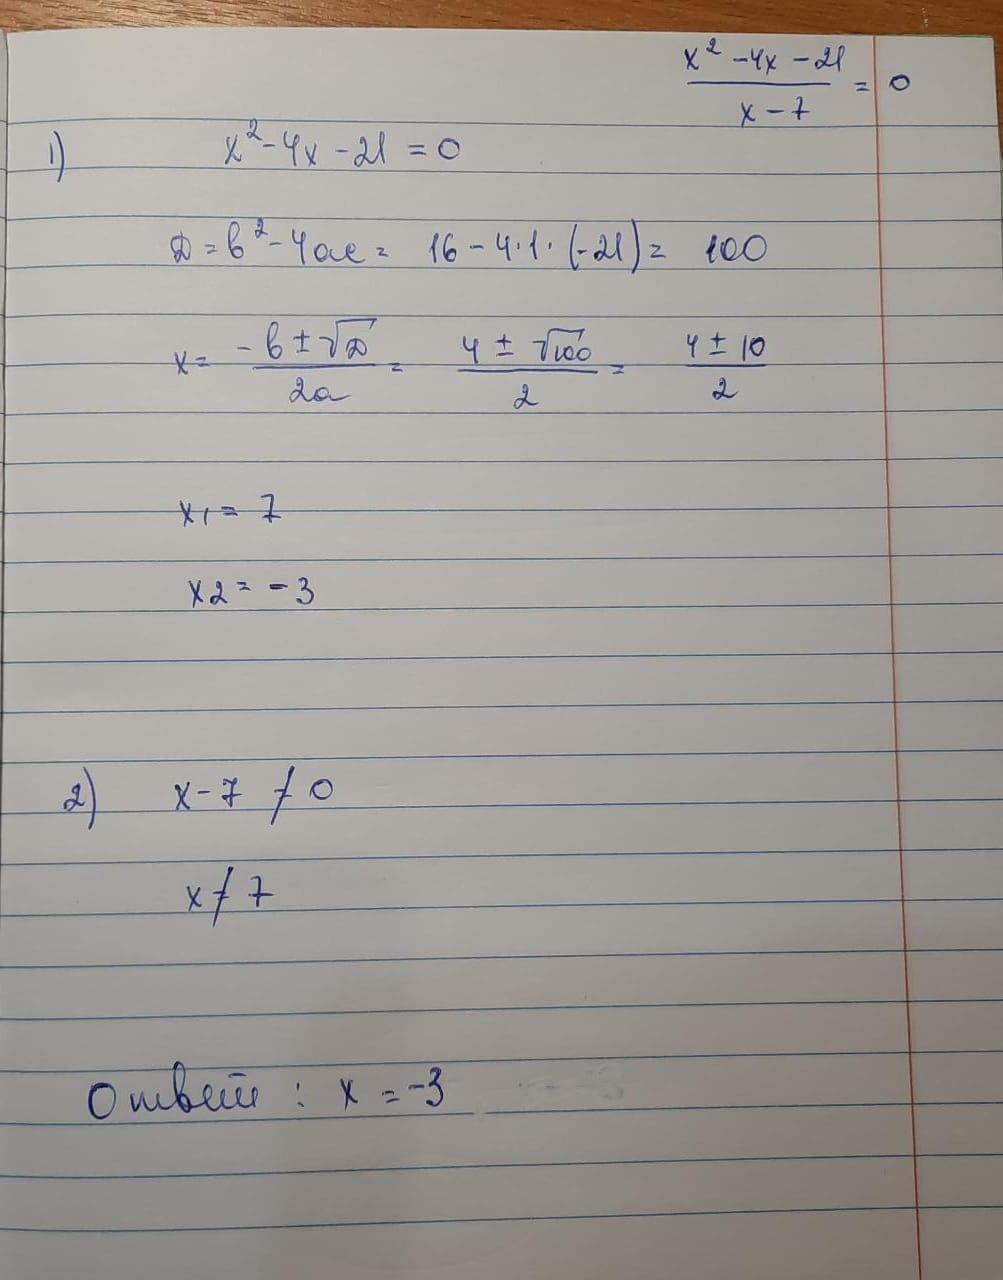 x² - 4x - 21 / x - 7 = 0
1) x² - 4x - 21 = 0
D = b² - 4ac = 16 - 4·1·(-21) = 100
x = -b ± √D / 2a = 4 ± √100 / 2 = 4 ± 10 / 2
x1 = 7
x2 = -3
2) x - 7 ≠ 0
x ≠ 7
Ответ : x = -3